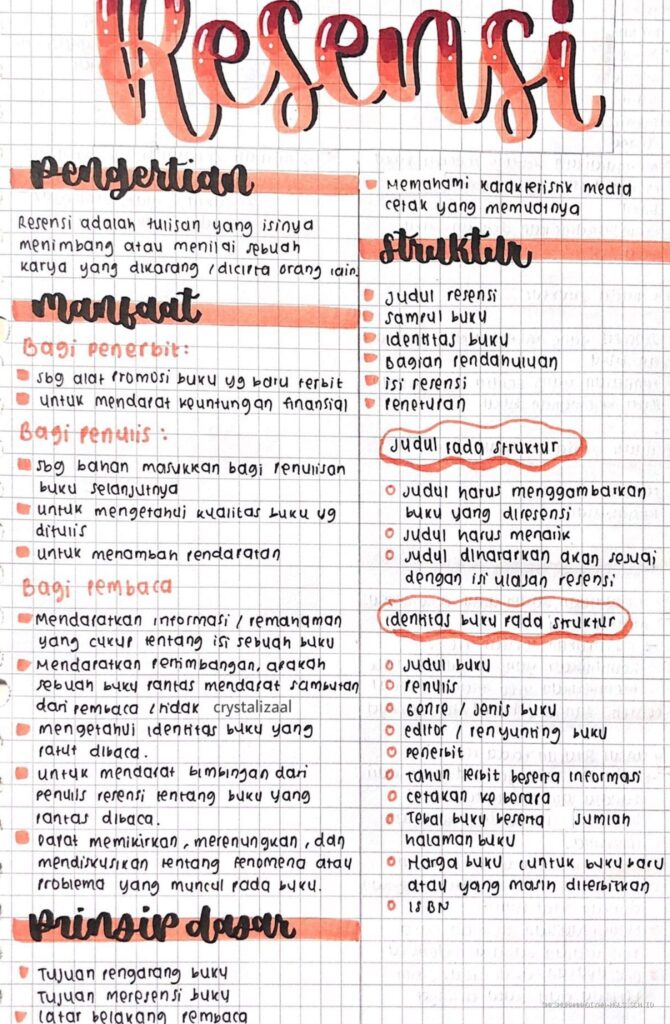 Resensi
Pengertian
Resensi adalah tulisan yang isinya
menimbang atau menilai sebuah
karya yang dikarang /dicipta orang lain.
Manfaat
Bagi penerbit:
sbg alat promosi buku yg baru terbit
untuk mendapat keuntungan finansial
Bagi penulis :
sbg bahan masukkan bagi penulisan
buku selanjutnya
untuk mengetahui kualitas buku yg
ditulis
untuk menambah pendapatan
Bagi pembaca
Mendapatkan informasi / pemahaman
yang cukup tentang isi sebuah buku
Mendapatkan pertimbangan, apakah
sebuah buku pantas mendapat sambutan
dari pembaca /tidak crystalizaal
mengetahui identitas buku yang
patut dibaca.
untuk mendapat bimbingan dari
penulis resensi tentang buku yang
pantas dibaca.
Dapat memikirkan, merenungkan, dan
mendiskusikan tentang fenomena atau
problema yang muncul pada buku.
Prinsip dasar
Tujuan pengarang buku
Tujuan meresensi buku
latar belakang pembaca
Memahami karakteristik media
cetak yang memuatnya
Struktur
Judul resensi
sampul buku
Identitas buku
Bagian pendahuluan
isi resensi
penutupan
Judul pada struktur
Judul harus menggambarkan
buku yang diresensi
Judul harus menarik
Judul diharapkan akan sesuai
dengan isi ulasan resensi
identitas buku pada struktur
Judul buku
penulis
Genre / Jenis buku
editor / penyunting buku
penerbit
tahun terbit beserta informasi
cetakan ke berapa
Tebal buku beserta jumlah
halaman buku
Harga buku (untuk buku baru
atau yang masih diterbitkan
ISBN